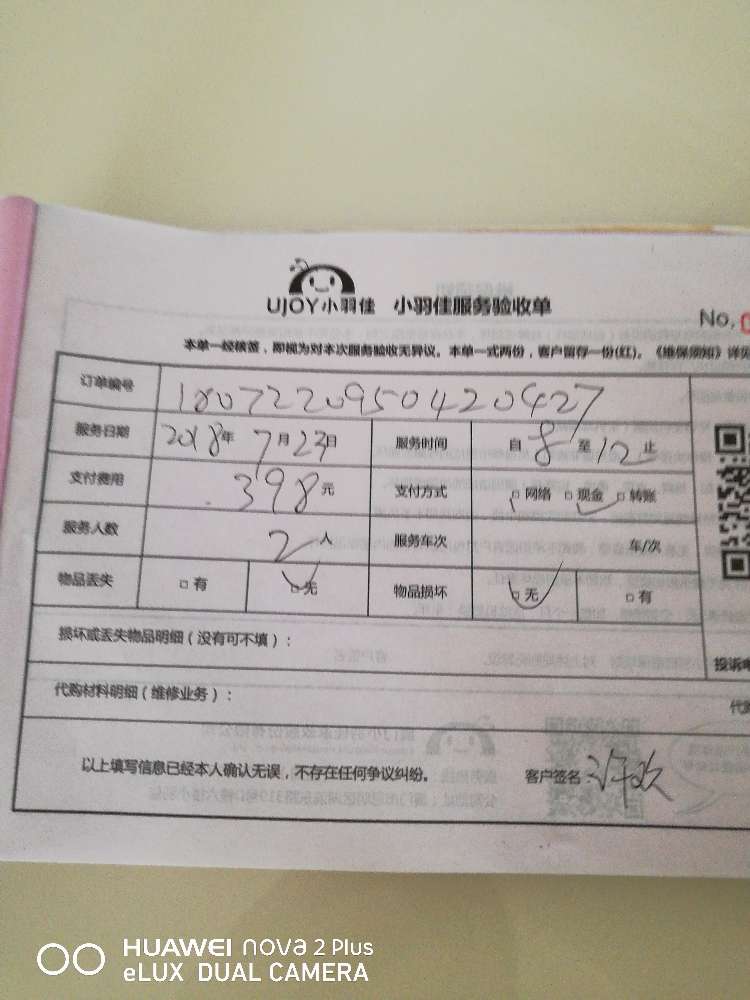 UJOY小羽佳 小羽佳服务验收单
No.
本单一经核签，即视为对本次服务验收无异议。本单一式两份，客户留存一份(红)。《维保须知》详见
订单编号 1807220950420427
服务日期 2018年7月23日 服务时间 自8至12止
支付费用 398元 支付方式 □网络 □现金 □转账
服务人数 2人 服务车次 车/次
物品丢失 □有 □无 物品损坏 □无 □有
损坏或丢失物品明细（没有可不填）：
投诉电
代购材料明细（维修业务）：
代购
以上填写信息已经本人确认无误，不存在任何争议纠纷。 客户签名：许欢
HUAWEI nova 2 Plus
eLUX DUAL CAMERA